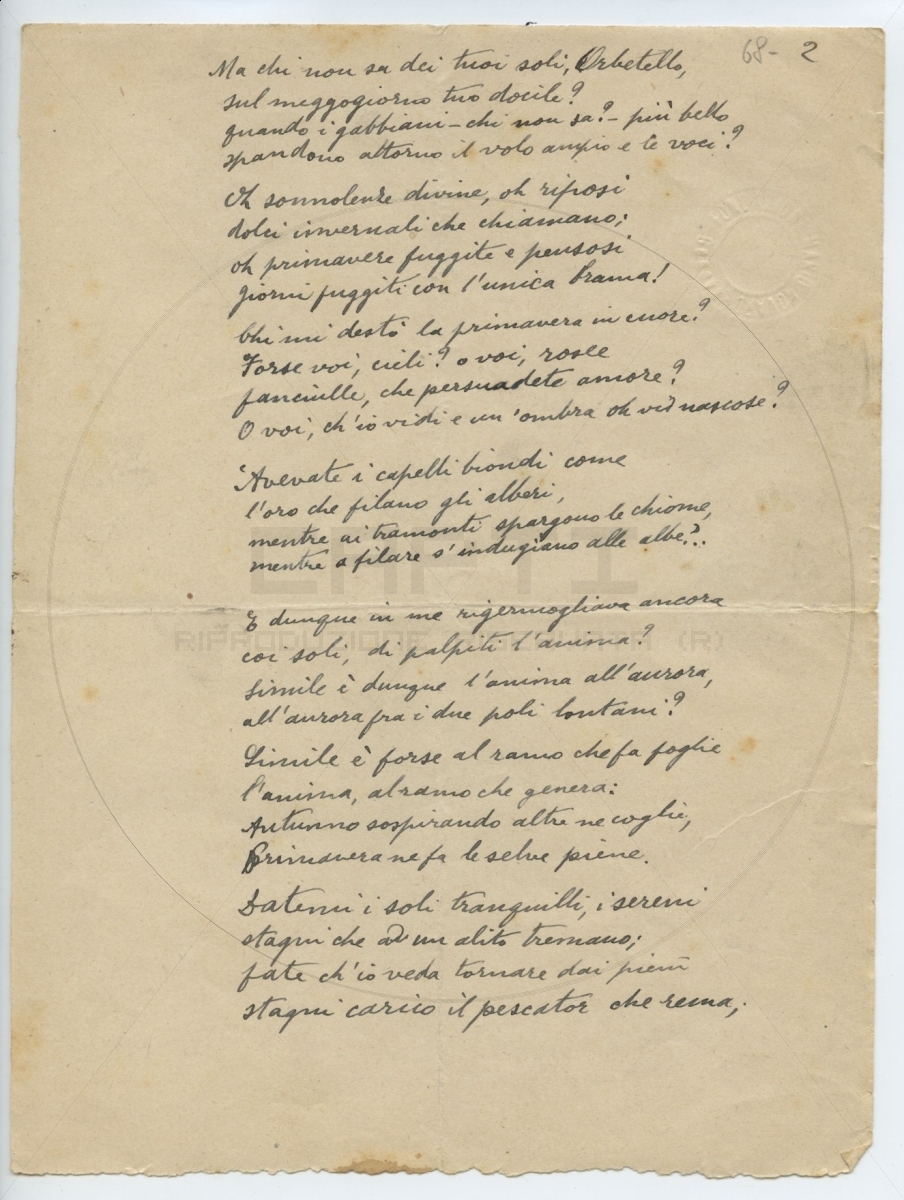 68- 2
Ma chi non sa dei tuoi soli, Orbetello,
sul meggogiorno tuo docile?
quando i gabbiani – chi non sa? – più bello
spandono attorno il volo ampio e le voci?
Oh sonnolenze divine, oh riposi
dolci invernali che chiamano;
oh primavere fuggite e pensosi
giorni fuggiti con l'unica brama!
Chi mi destò la primavera in cuore?
Forse voi, cieli? o voi, rosee
fanciulle, che persuadete amore?
O voi, ch'io vidi e un'ombra oh vi nascose?
Avevate i capelli biondi come
l'oro che filano gli alberi,
mentre ai tramonti spargono le chiome,
mentre a filare s'indugiano alle albe?..
E dunque in me rigermogliava ancora
coi soli, di palpiti l'anima?
Simile è dunque l'anima all'aurora,
all'aurora fra i due poli lontani?
RIPRODUZIONE (R)
Simile è forse al ramo che fa foglie
l'anima, al ramo che genera:
Autunno sospirando altre ne coglie,
Primavera ne fa le selve piene.
Datemi i soli tranquilli, i sereni
stagni che ad un alito tremano;
fate ch'io veda tornare dai pieni
stagni carico il pescator che rema;